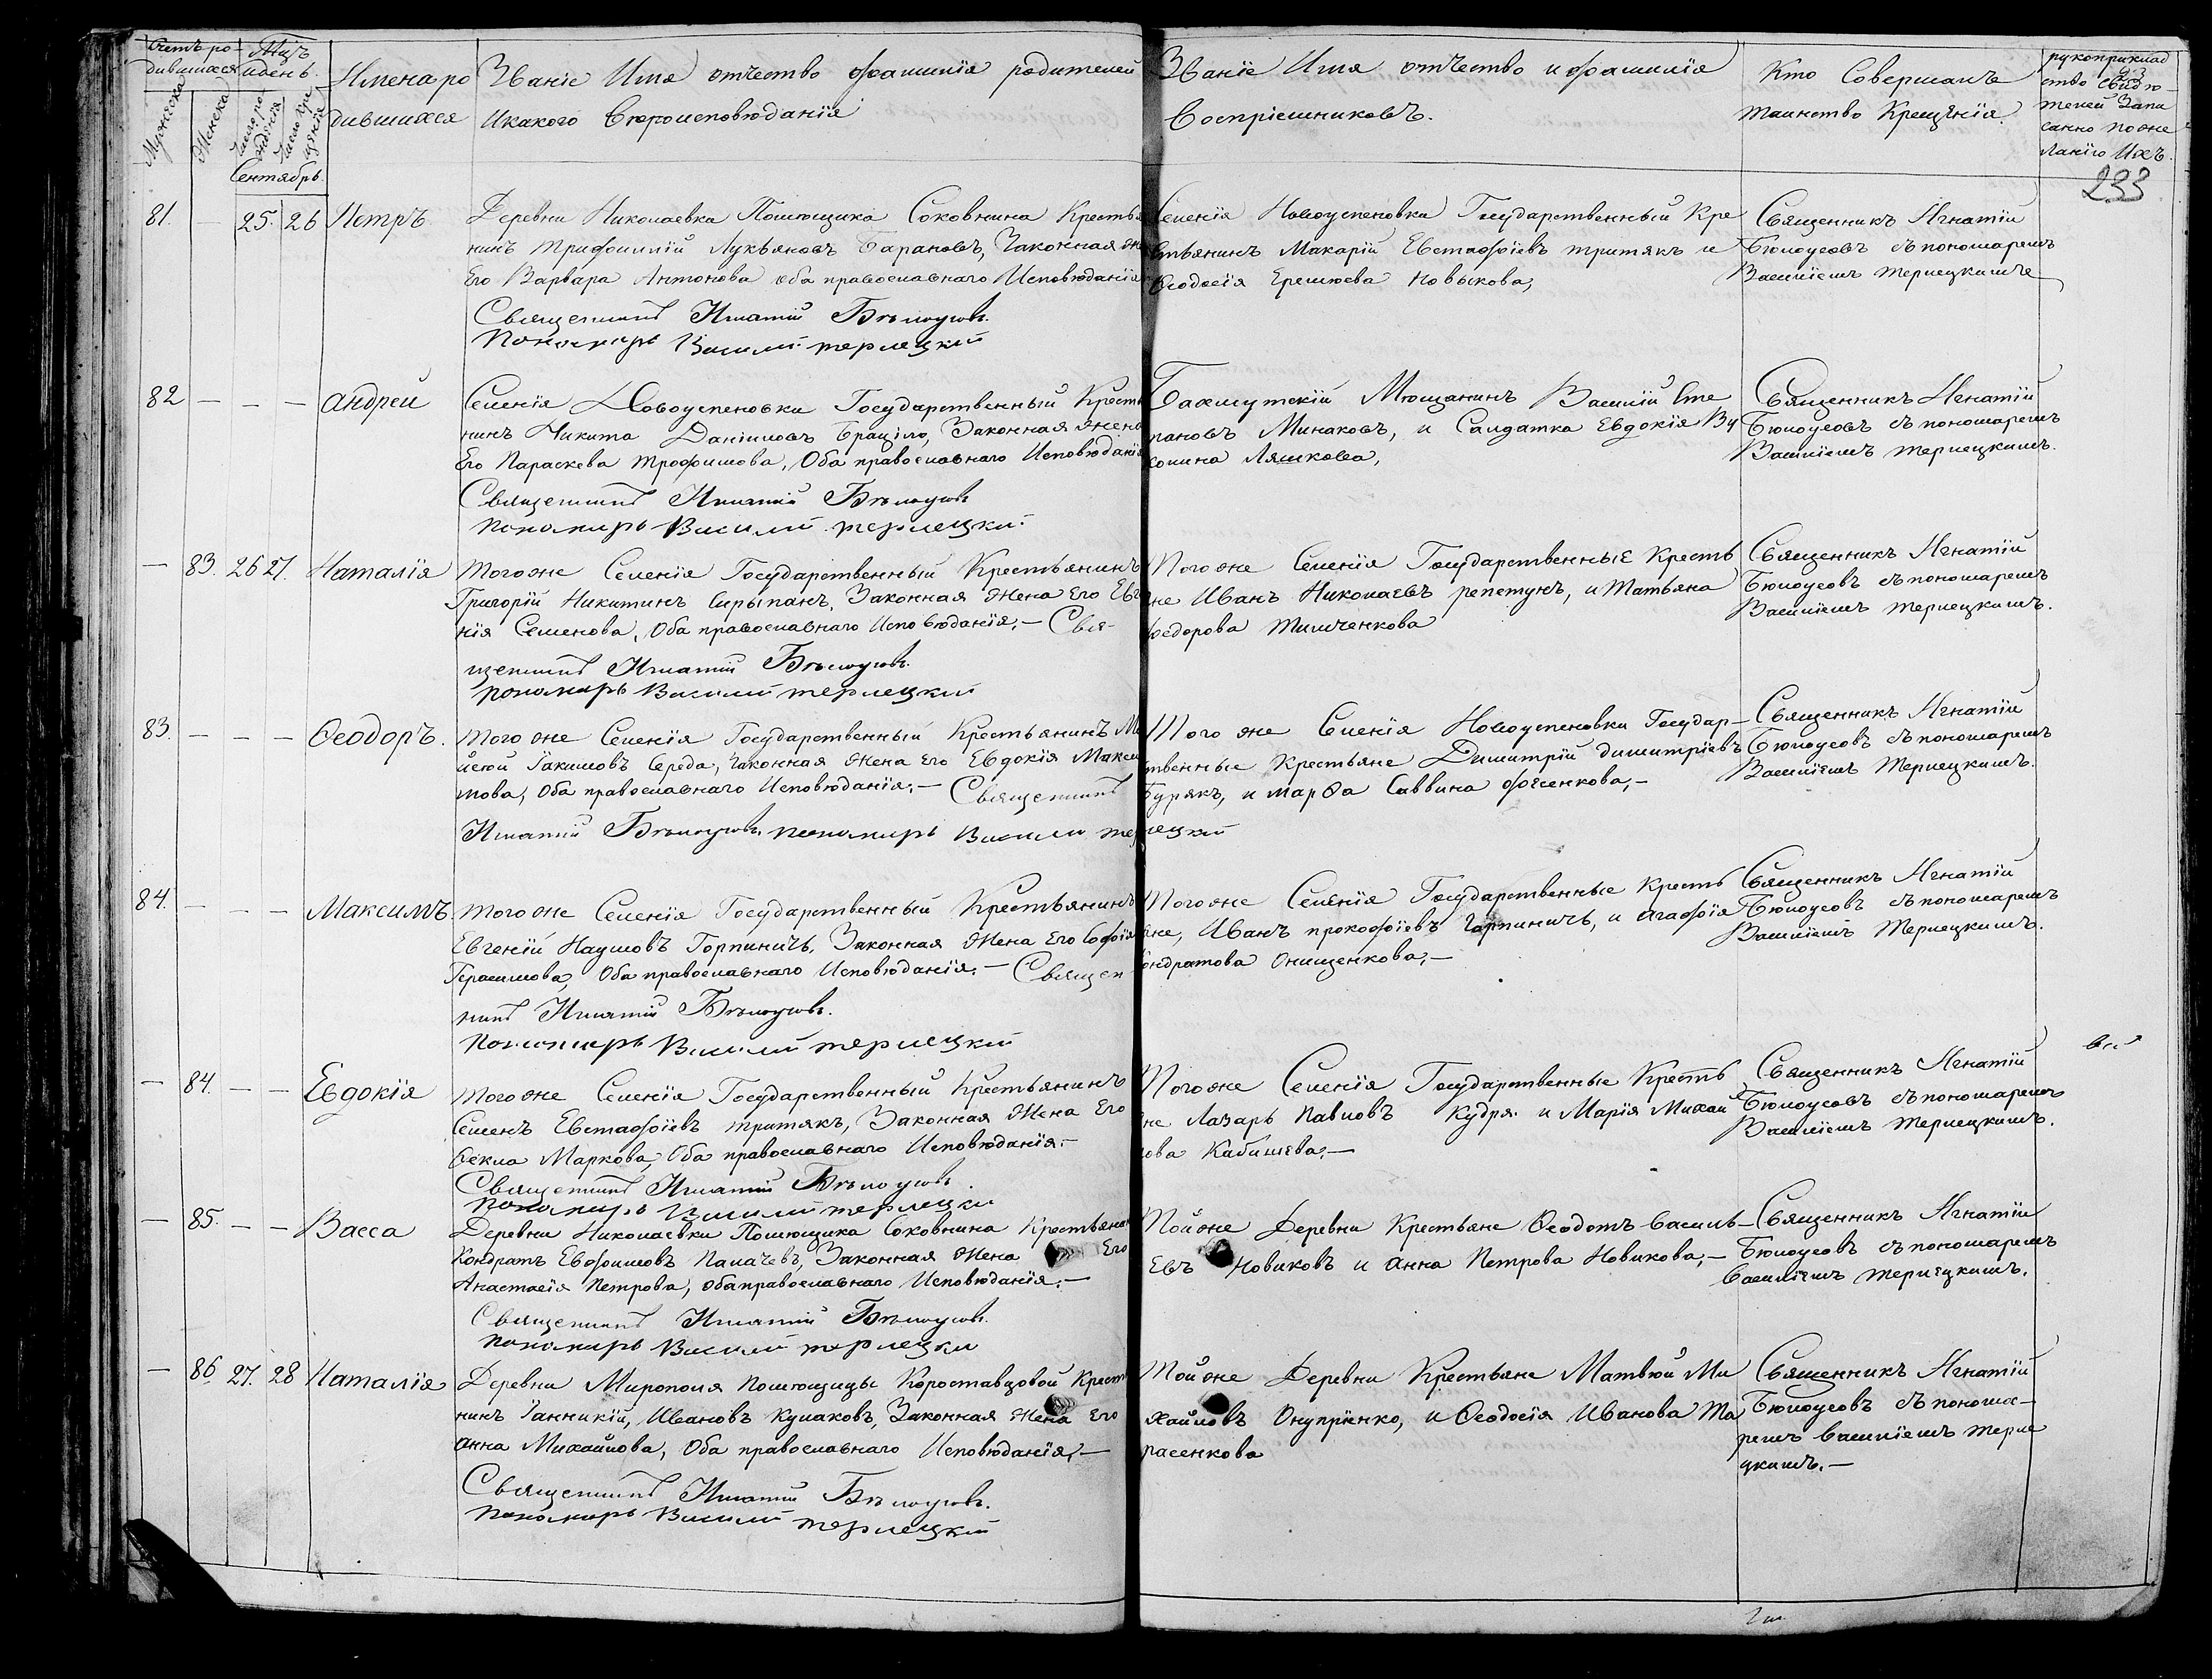 Счетъ ро-
дившихся
Мужеска
Женска
Мѣцъ
и день
Число ро-
жденія
Число кре-
щенія
Сентябрь.
Имена ро
дившихся
Званіе Имя отчество фамилія родителей
И какого Вѣроисповѣданія
Званіе Имя отчество и фамилія
Воспріемниковъ.
Кто Совершалъ
таинство Крещенія.
рукоприклад
ство Свидѣ-
телей Запи
санно по же
ланію Ихъ.
233
81. — 25. 26 Петръ
Деревни Николаевка Помѣщика Соковнина Крестья
нинъ Трифиллій Лукьяновъ Барановъ, Законная же
Его Варвара Антонова оба православнаго Исповѣданія
Священникъ Игнатій Бѣлоусовъ.
Пономарь Василій терлецкій
Селенія Новоуспеновки Государственный Кре
стьянинъ Макарій Евстафіевъ тритякъ и
Ѳеодосія Еремѣева Новыкова,
Священникъ Игнатій
Бѣлоусовъ съ пономаремъ
Василіемъ терлецкимъ
82 — — — Андрей
Селенія Новоуспеновки Государственный Кресть
нинъ Никита Даніиловъ Браціло, Законная жена
Его Параскева трофимова, Оба православнаго Исповѣданія
Священникъ Игнатій Бѣлоусовъ
пономарь Василій терлецкій.
Бахмутскій Мѣщанинъ Василій Сте
пановъ Минаковъ, и Салдатка Евдокія Ву
колина Ляшкова,
Священникъ Игнатій
Бѣлоусовъ съ пономаремъ
Василіемъ терлецкимъ.
— 83. 26 27. Наталія
того же Селенія Государственный Крестьянинъ
Григорій Никитинъ Сирыпанъ, Законная жена Его Евге
нія Семенова, Оба православнаго Исповѣданія.— Свя-
щенникъ Игнатій Бѣлоусовъ.
пономарь Василій терлецкій
того же Селенія Государственные Кресть
яне Иванъ Николаевъ репетунъ, и Татьяна
Ѳедорова Тимченкова
Священникъ Игнатій
Бѣлоусовъ съ пономаремъ
Василіемъ терлецкимъ.
83. — — — Ѳеодоръ.
того же Селенія Государственный Крестьянинъ Мо
йсей Іакимовъ Середа, Законная жена его Евдокія Макси
мова, Оба православнаго Исповѣданія,— Священникъ
Игнатій Бѣлоусовъ, пономарь Василій терлецкій
Того же Селенія Новоуспеновки Государ—
ственные Крестьяне Димитрій димитріевъ
Бурякъ, и марѳа Саввина фесенкова,—
Священникъ Игнатій
Бѣлоусовъ съ пономаремъ
Василіемъ Терлецкимъ.
84. — — — Максимъ.
того же Селенія Государственный Крестьянинъ
Евгеній Наумовъ Горпиничъ, Законная жена Его Софія
Герасимова, Оба православнаго Исповѣданія.— Священ
никъ Игнатій Бѣлоусовъ.
пономарь Василій терлецкій
того же Селенія Государственные Кресть
яне, Иванъ прокофіевъ Гарпиничъ, и агафія
Кондратова Онищенкова,—
Священникъ Игнатій
Бѣлоусовъ съ пономаремъ
Василіемъ Терлецкимъ.
— 84. — — Евдокія
того же Селенія Государственный Крестьянинъ
Семенъ Евстафіевъ тритякъ, Законная Жена Его
Ѳекла Маркова, Оба православнаго Исповѣданія.—
Священникъ Игнатій Бѣлоусовъ.
пономарь Василій терлецкій
того же Селенія Государственные Кресть
яне Лазарь Павловъ Кудря и Марія Михай
лова Кабишева,—
Священникъ Игнатій
Бѣлоусовъ съ пономаремъ
Василіемъ терлецкимъ.
— 85. — — Васса
Деревни Николаевки Помѣщика Соковнина Крестьянин
Кондратъ Евфимовъ Палачевъ, Законная жена Его
Анастасія Петрова, Оба православнаго Исповѣданія.—
Священникъ Игнатій Бѣлоусовъ.
пономарь Василій терлецкій
той же Деревни Крестьяне Ѳеодотъ Василь—
Евъ Новиковъ и Анна Петрова Новикова,—
Священникъ Игнатій
Бѣлоусовъ съ пономаремъ
Василіемъ терлецкимъ.
— 86. 27. 28 Наталія
Деревни Мирополя помѣщицы Короставцовой Кресть
нинъ Іанникій, Ивановъ Кулаковъ, Законная Жена Его
Анна Михайлова, Оба православнаго Исповѣданія,—
Священникъ Игнатій Бѣлоусовъ.
пономарь Василій терлецкій
той же Деревни Крестьяне Матвѣй Ми
хайловъ Онупріенко, и Ѳеодосія Иванова Та
расенкова
Священникъ Игнатій
Бѣлоусовъ съ понома—
ремъ Василіемъ терле
цкимъ.—